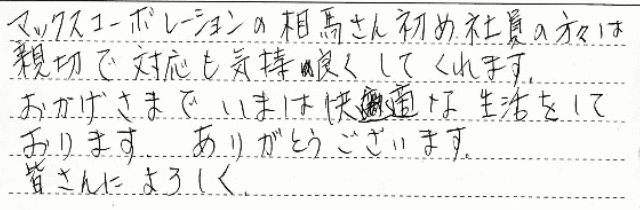 マックスコーポレーションの相馬さん初め社員の方々は
親切で対応も気持良くしてくれます。
おかげさまでいまは快適な生活をして
おります。ありがとうございます。
皆さんによろしく。